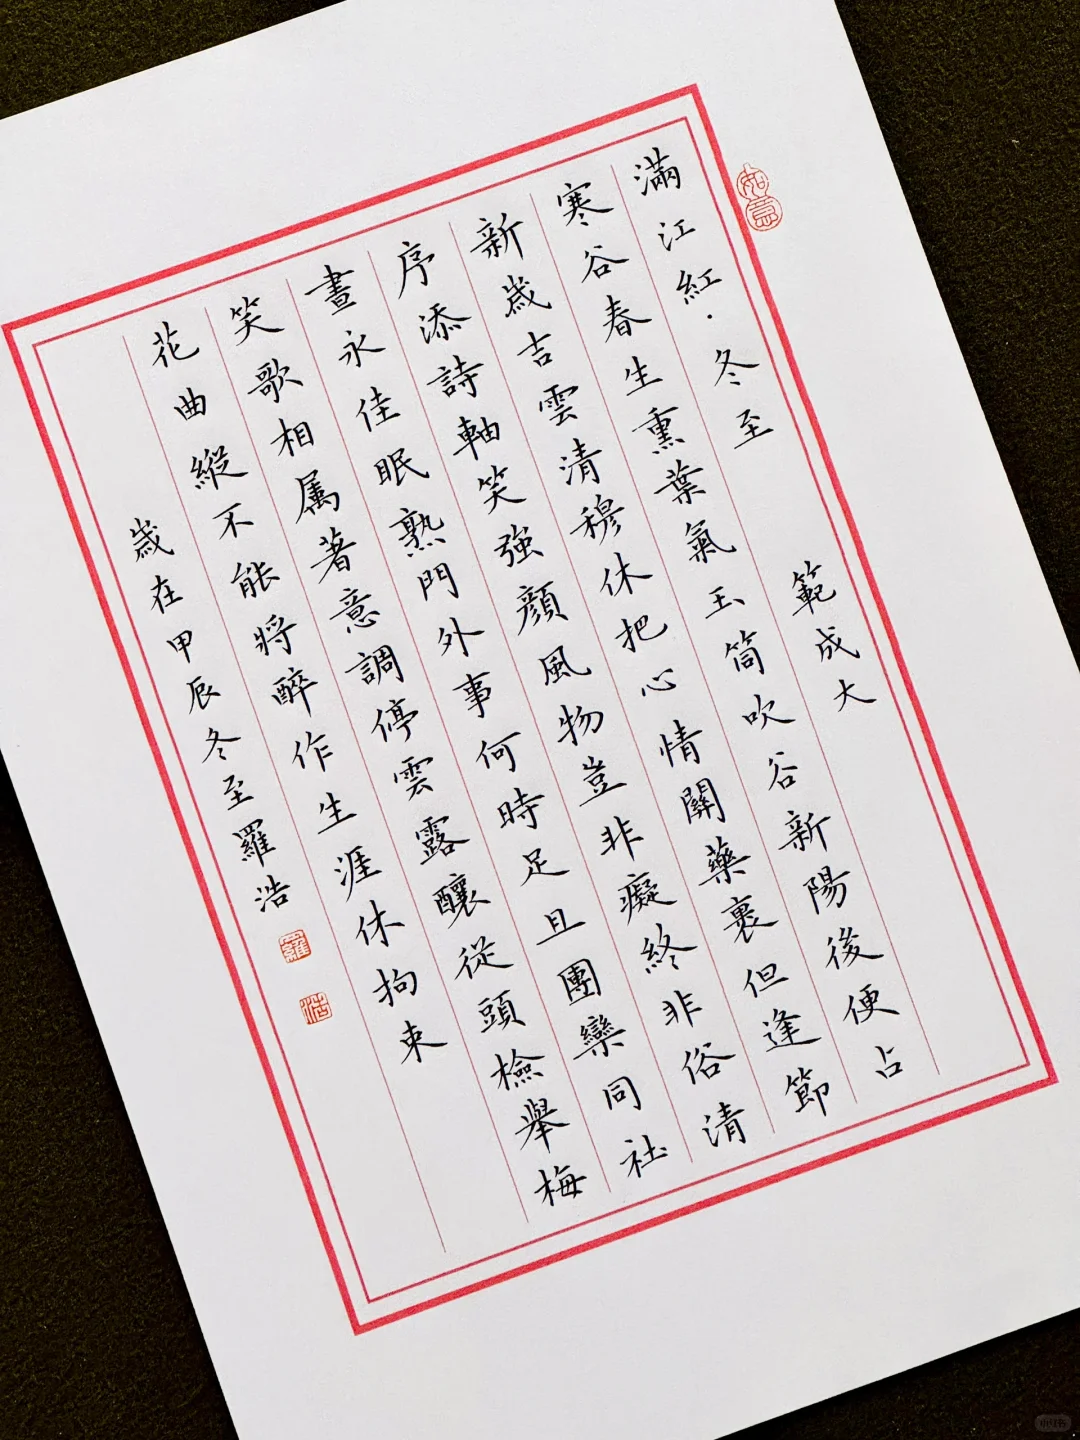 如意
滿江紅·冬至 範成大
寒谷春生熏葉氣玉筒吹谷新陽後便占
新歲吉雲清穆休把心情關藥裹但逢節
序添詩軸笑強顔風物豈非癡終非俗清
晝永佳眠熟門外事何時足且團欒同社
笑歌相属著意調停雲露釀從頭檢舉梅
花曲縱不能將醉作生涯休拘束
歲在甲辰冬至羅浩
羅
浩
小红书